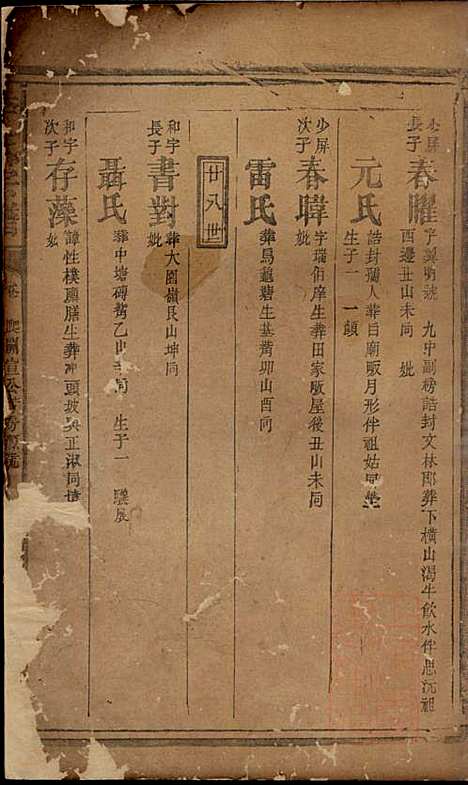 少屏長子 春曜 字 號 九申副榜誥封文林郎葬下橫山渴牛飲水伴思沅祖
酉邊丑山未同 妣
元氏 誥封孺人葬 廟畈月形伴祖姑 塋
生子一 一頫
少屏次子 春暐 字瑞伯庠生葬田家畈屋後丑山未同
妣
雷氏 葬烏龜磡生基嘴卯山酉同
廿八世
和宇長子 書對 葬大園嶺艮山坤同
妣
聶氏 葬中塘磚嘴乙 同 生子一 驥展
和宇次子 存藻 諱性樸 膳生葬冲頭坡 正淑同
妣